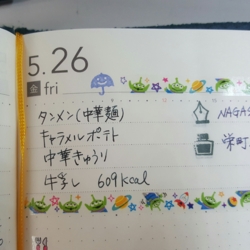 5.26
金 fri
タンメン(中華麺)
キャラメルポテト
中華きゅうり
牛乳 609kcal
NAGAS
栄町